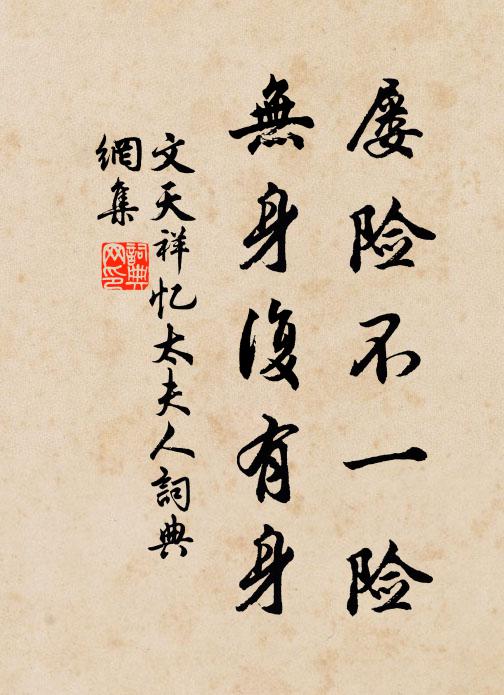 屡险不一险
無身復有身
文天祥忆太夫人詞典
網集
詞典
网印